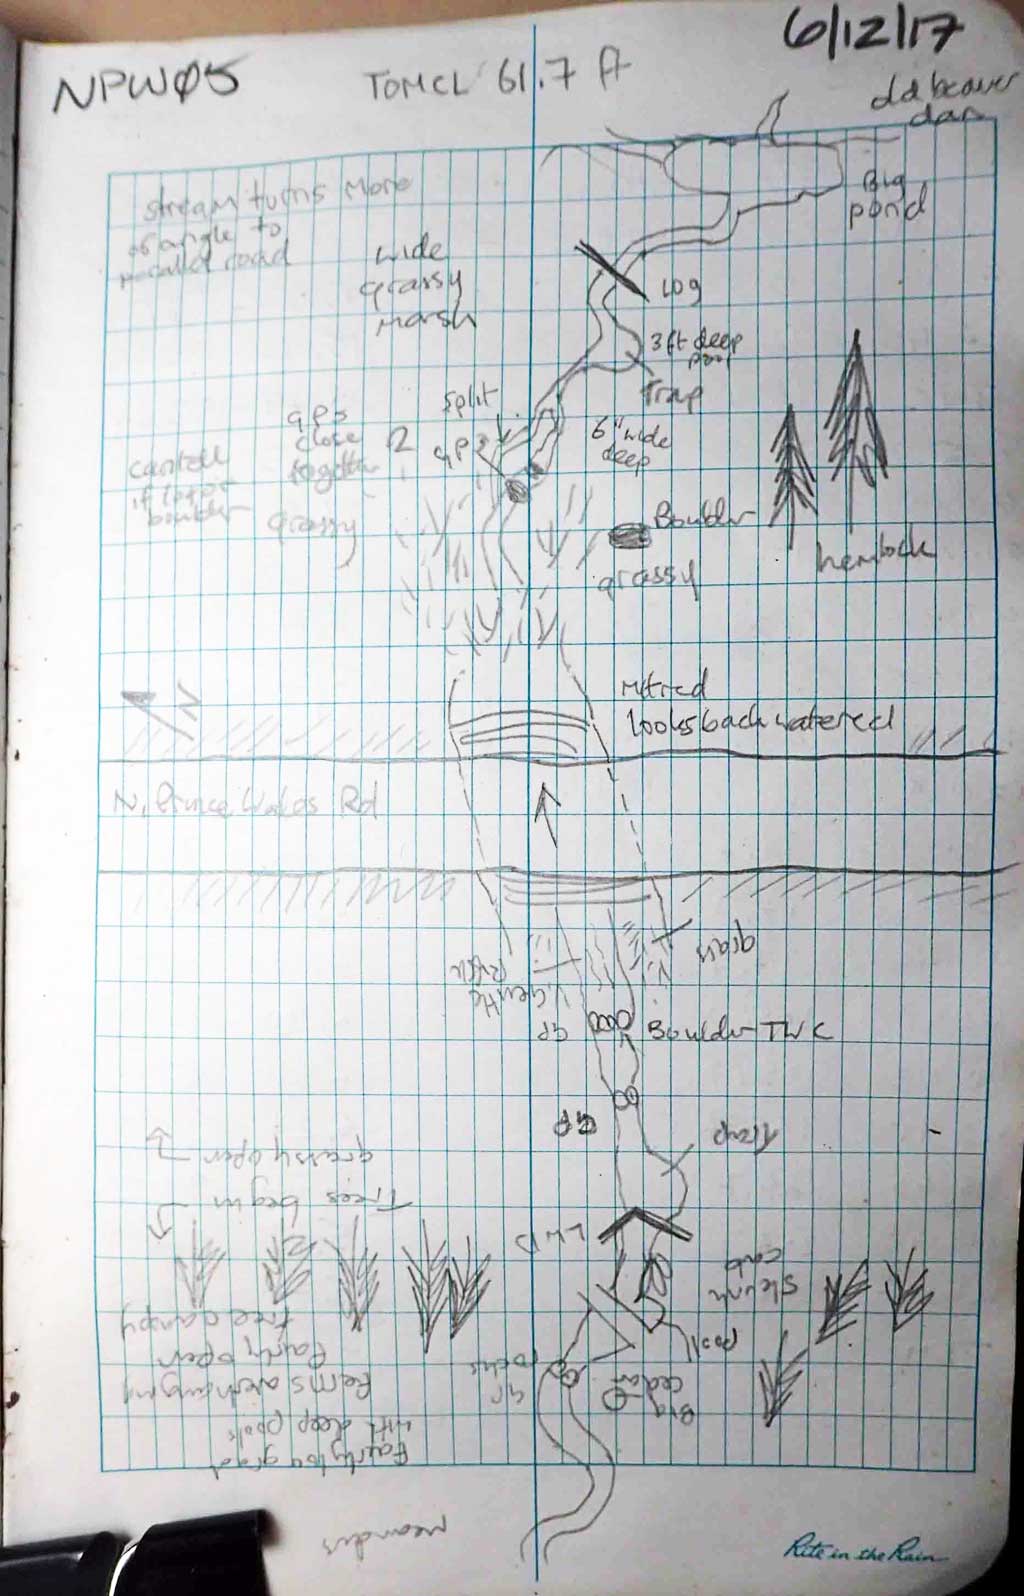 6/12/17
NPW05
TOMCL 61.7 ft
old beaver
dam
stream turns more
angle to
road
wide
grassy
marsh
Big
pond
Log
3ft deep
pool
Trap
split
GP?
GPs
close
together
6" wide
deep
can't tell
if
boulder
grassy
Boulder
grassy
hemlock
N
Mitred
looks backwatered
N. Prince Wales Rd
grass
Riffle
V. gentle
GP
Boulder TWC
GP
Trap
grassy open
Trees begin
LWD
Skunk
cab
pool
Big
cedar
GP
rocks
tree canopy
Fairly open
Ferns overhanging
with deep pools
Fairly low grad
meanders
Rite in the Rain